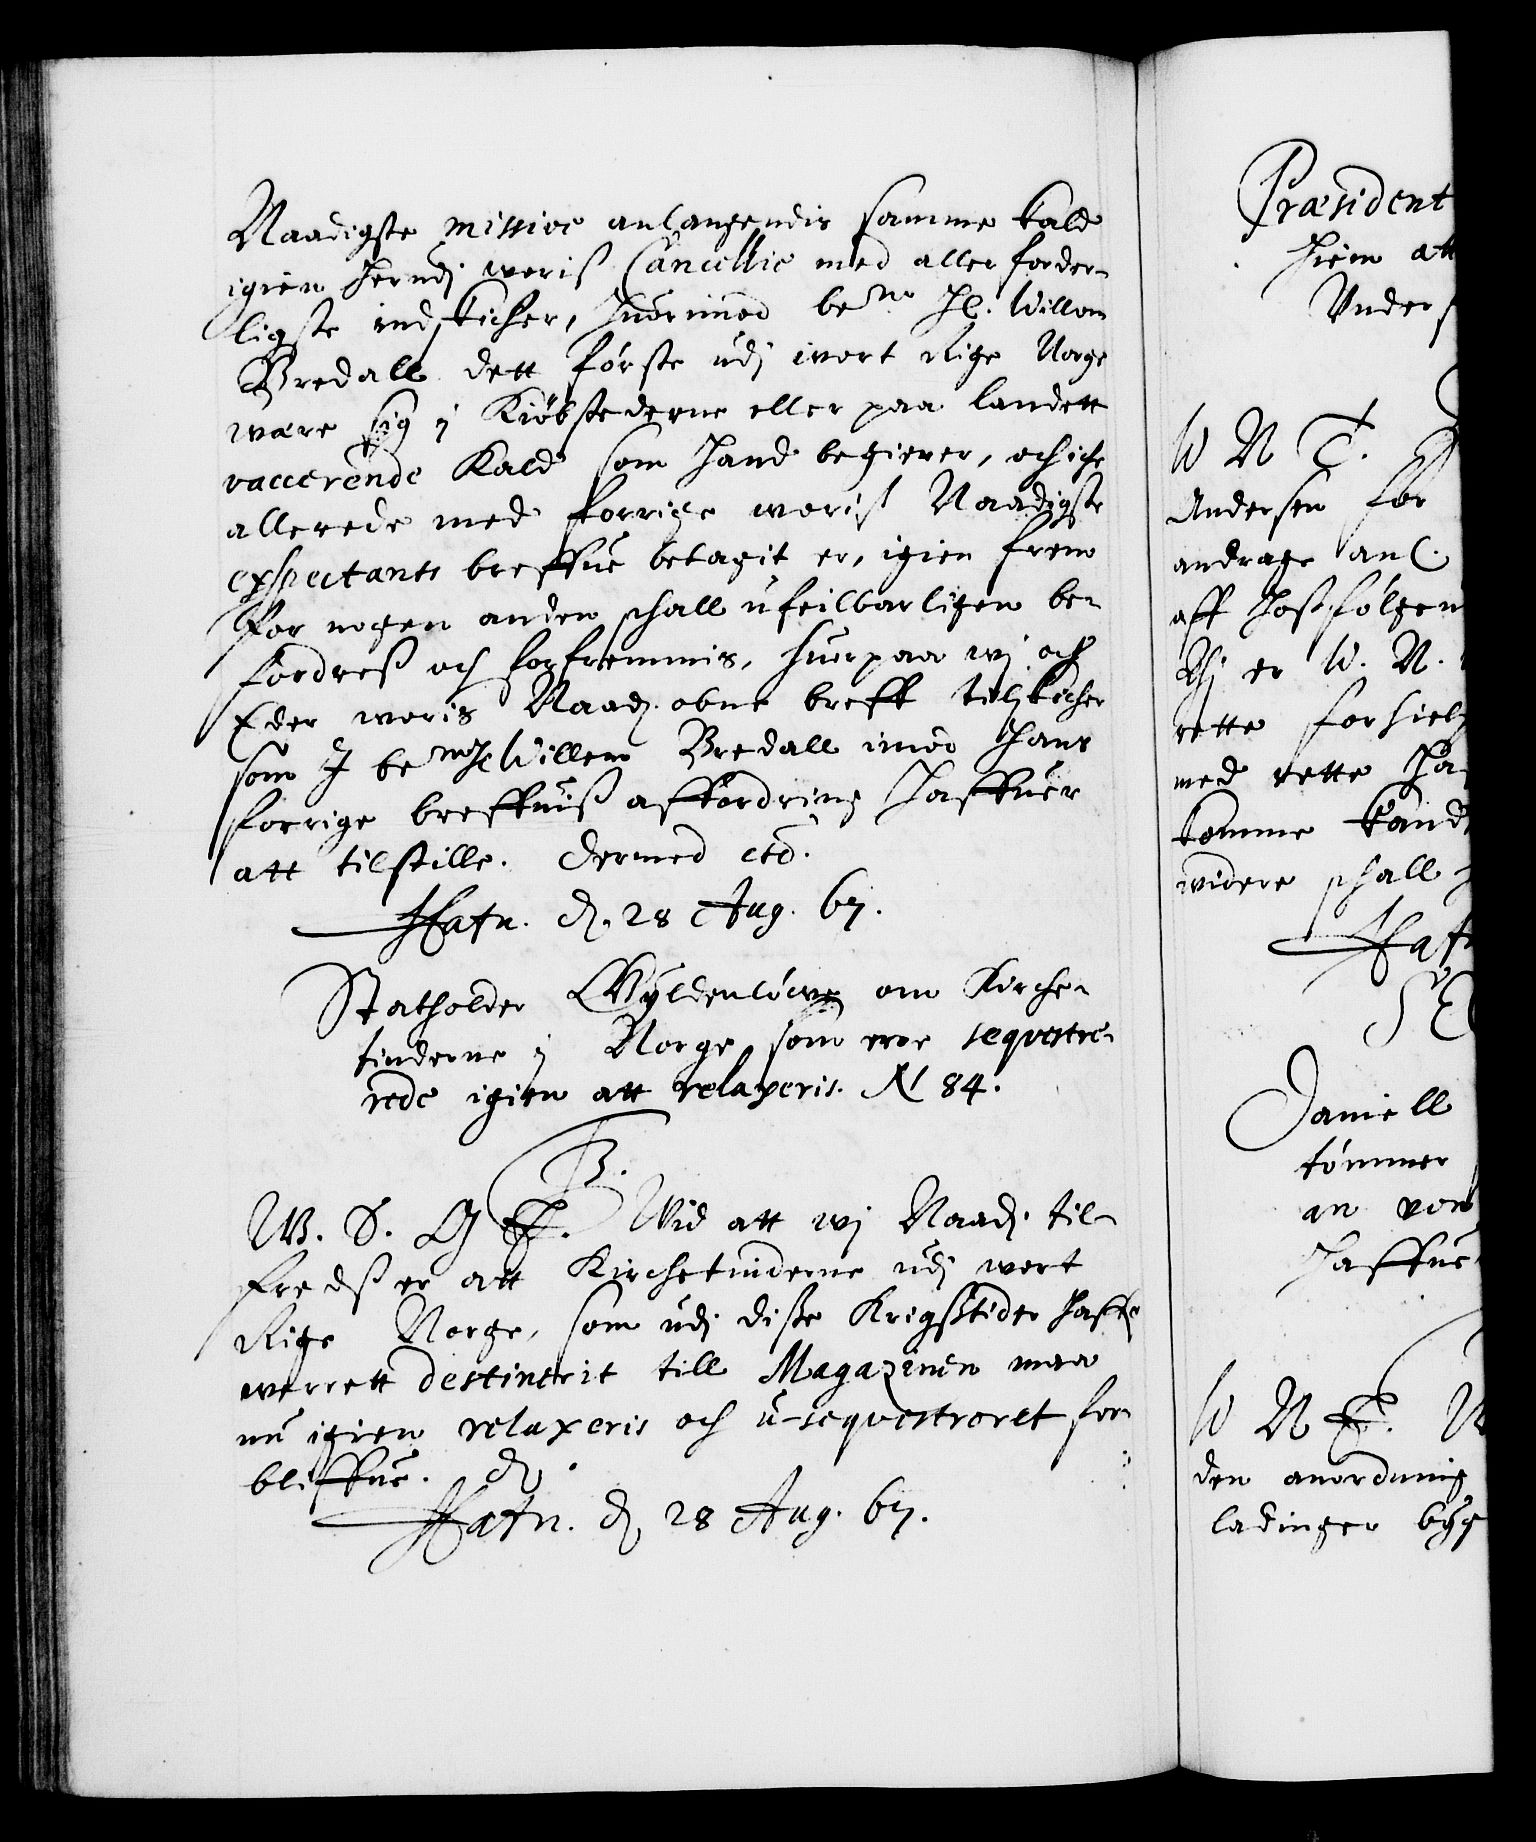 Naadigste missive anlangendis samme kald
igien herudj woris Cancellie med aller forder-
ligste indskicher, huorimod bemte Hr. Willom
Bredall dett förste udj wort Rige Norge
være sig j Kiöbstederne eller paa landett
vaccerende Kald som hand begierer, och iche
allerede med forrige woris Naadigste
exspectants breffue betagit er, igien frem
for nogen anden schall ufeilbarligen be-
fordreß och forfremmis, huorpaa wj och
Eder woris Naad. obne breff tilskicher
som I bemte Hr Willem Bredall imod hans
forrige breffuiß affordring haffuer
att tilstille. Dermed etc.
Hafn. d. 28 Aug. 67.
Statholder Gyldenlöwe om Kirche-
tinderne j Norge som erre seqvestre-
rede igien att relaxeris. N 84.
C5.
W. S. G T. Wid att wj Naadj. til-
freds er att Kirchetinderne udj wort
Rige Norge, som udj diße Krigßtider haffr
werrett destinerit till Magazinen maa
nu igien relaxeris och u-seqvestreret for-
bliffue. D.
Hafn. d. 28 Aug. 67.
Præsident
hiem att
Under
W N T.
Andersen for
andrage anl.
aff hoßfölgen
Thj er W. N.
rette forhielp
med rette ha
komme kand
widere schall
Hafn
Daniell
tömmer
an von
haffue
W N T.
den anordning
ladinger byg